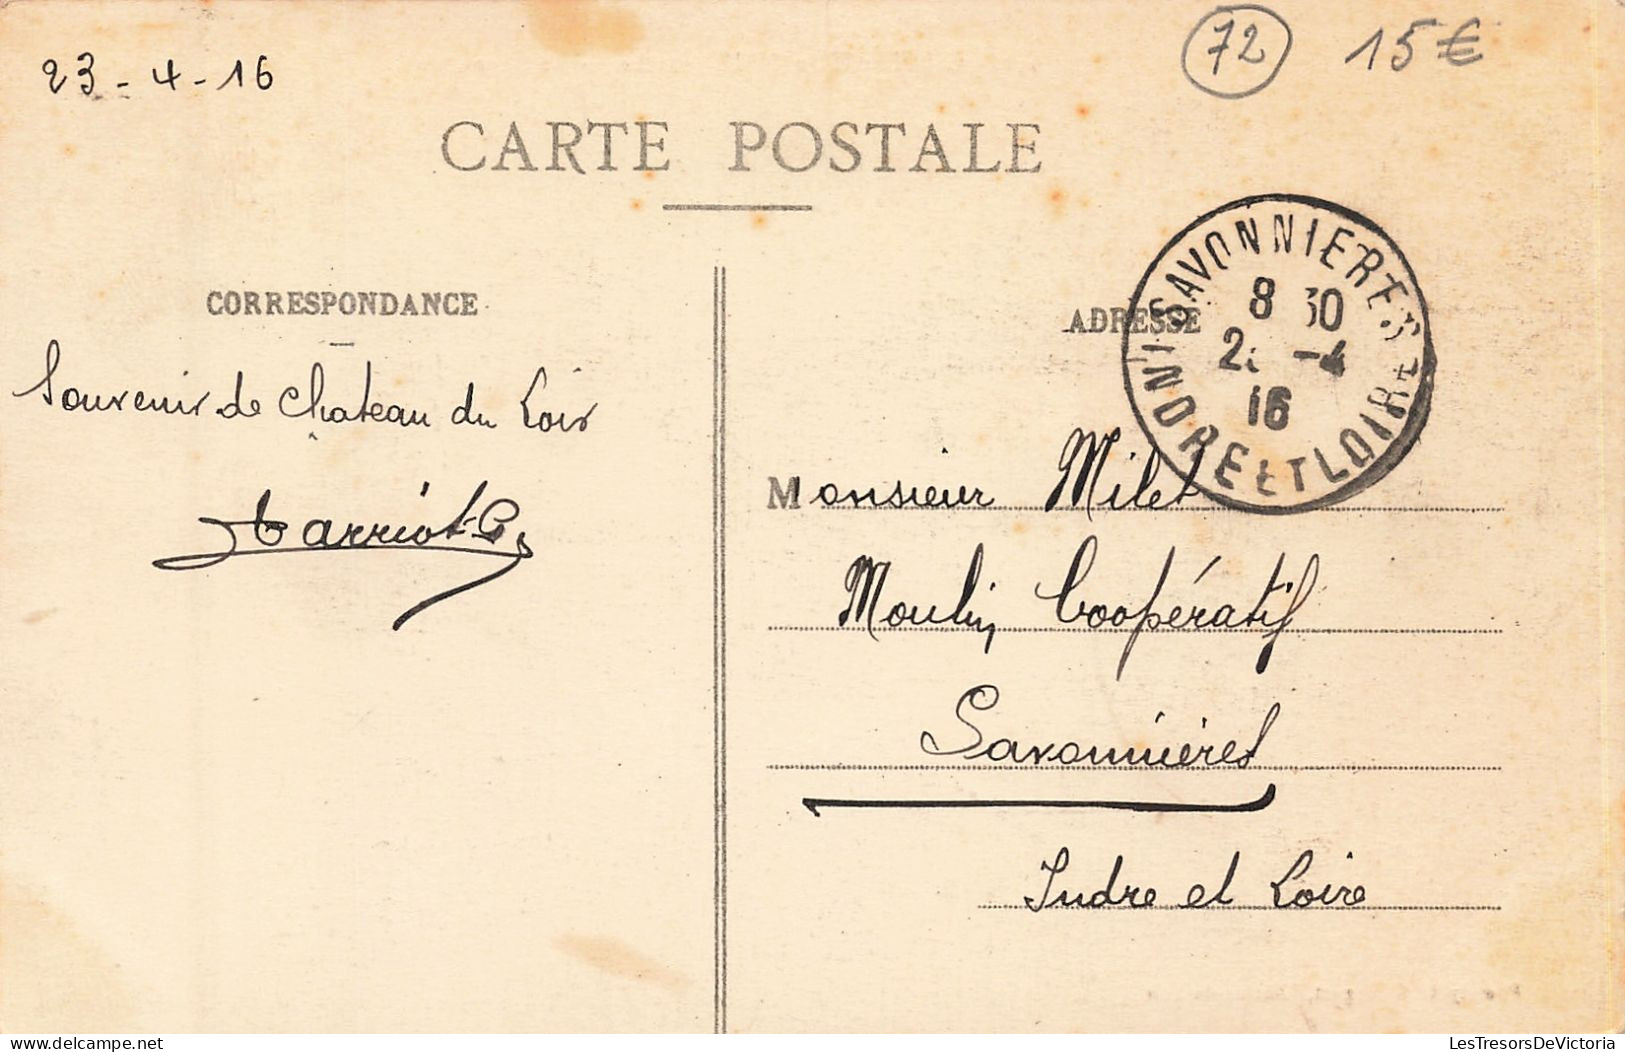 23-4-16
72 15€
CARTE POSTALE
CORRESPONDANCE
ADRESSE
SAVONNIERES
8 30
2 -4
16
INDRE ET LOIRE
Souvenir de Chateau du Loir
Monsieur Milet
Moulin Coopératif
Savonnières
Indre et Loire
LesTresorsDeVictoria